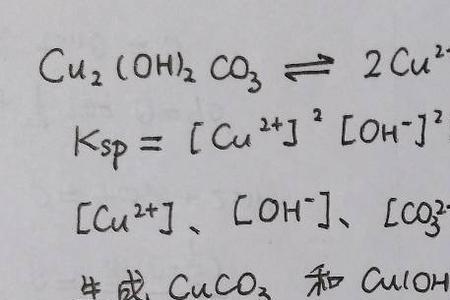 Cu₂(OH)₂CO₃ ⇌ 2Cu²⁻
Ksp = [Cu²⁺]² [OH⁻]²
[Cu²⁺]、[OH⁻]、[CO₃²⁻
生成 CuCO₃ 和 Cu(OH